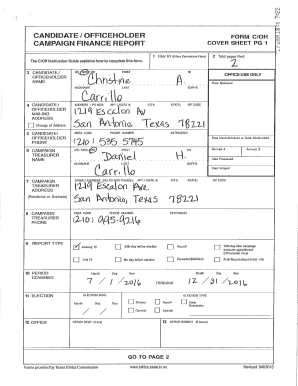 CANDIDATE / OFFICEHOLDER
CAMPAIGN FINANCE REPORT
FORM C/OH
COVER SHEET PG 1
The C/OH Instruction Guide explains how to complete this form.
1 Filer ID (Ethics Commission Filers)
2 Total pages filed:
2
3 CANDIDATE / OFFICEHOLDER NAME
FIRST
MI
Christine A.
NICKNAME LAST SUFFIX
Carrillo
OFFICE USE ONLY
Date Received
4 CANDIDATE / OFFICEHOLDER MAILING ADDRESS
Change of Address
ADDRESS / PO BOX; APT / SUITE #; CITY; STATE; ZIP CODE
1219 Escalon Av
San Antonio, Texas 78221
5 CANDIDATE / OFFICEHOLDER PHONE
AREA CODE PHONE NUMBER EXTENSION
(210) 535 5745
Date Hand-delivered or Date Postmarked
Receipt # Amount $
Date Processed
Date Imaged
6 CAMPAIGN TREASURER NAME
FIRST
MI
Daniel H.
NICKNAME LAST SUFFIX
Carrillo
7 CAMPAIGN TREASURER ADDRESS
(Residence or Business)
STREET ADDRESS (NO PO BOX PLEASE); APT / SUITE #; CITY; STATE; ZIP CODE
1219 Escalon Ave.
San Antonio, Texas 78221
8 CAMPAIGN TREASURER PHONE
AREA CODE PHONE NUMBER EXTENSION
(210) 995-9216
9 REPORT TYPE
January 15
30th day before election
Runoff
15th day after campaign treasurer appointment (Officeholder Only)
July 15
8th day before election
Final Report (Attach C/OH - FR)
10 PERIOD COVERED
Month Day Year
7 / 1 / 2016
THROUGH
Month Day Year
12 / 31 / 2016
11 ELECTION
ELECTION DATE
Month Day Year
ELECTION TYPE
Primary
Runoff
Other Description
General
Special
12 OFFICE
OFFICE HELD (if any)
13 OFFICE SOUGHT (if known)
GO TO PAGE 2
Forms provided by Texas Ethics Commission
www.ethics.state.tx.us